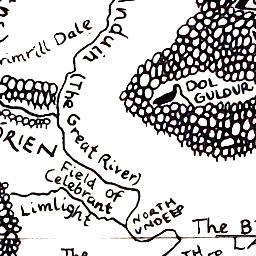 rimrill Dale
nduin
(The Great River)
DOL
GULDUR
RIEN
Field of
Celebrant
Limlight
NORTH
UNDEEP
The B
The
TH